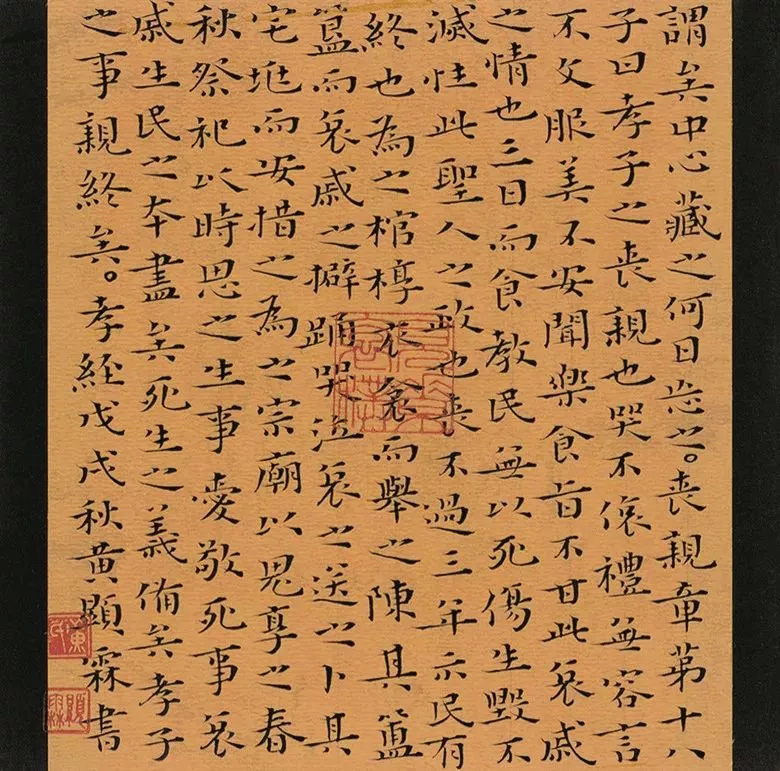 謂矣中心藏之何日忘之。喪親章第十八
子曰孝子之喪親也哭不偯禮無容言
不文服美不安聞樂食旨不甘此哀戚
之情也三日而食教民無以死傷生毀不
滅性此聖人之政也喪不過三年示民有
終也為之棺椁衣衾而舉之陳其簠
簋而哀戚之擗踊哭泣哀以送之卜其
宅地而安措之為之宗廟以鬼享之春
秋祭祀以時思之生事愛敬死事哀
戚生民之本盡矣死生之義備矣孝子
之事親終矣。孝經戊戌秋黃顯霖書
黃氏
顯霖